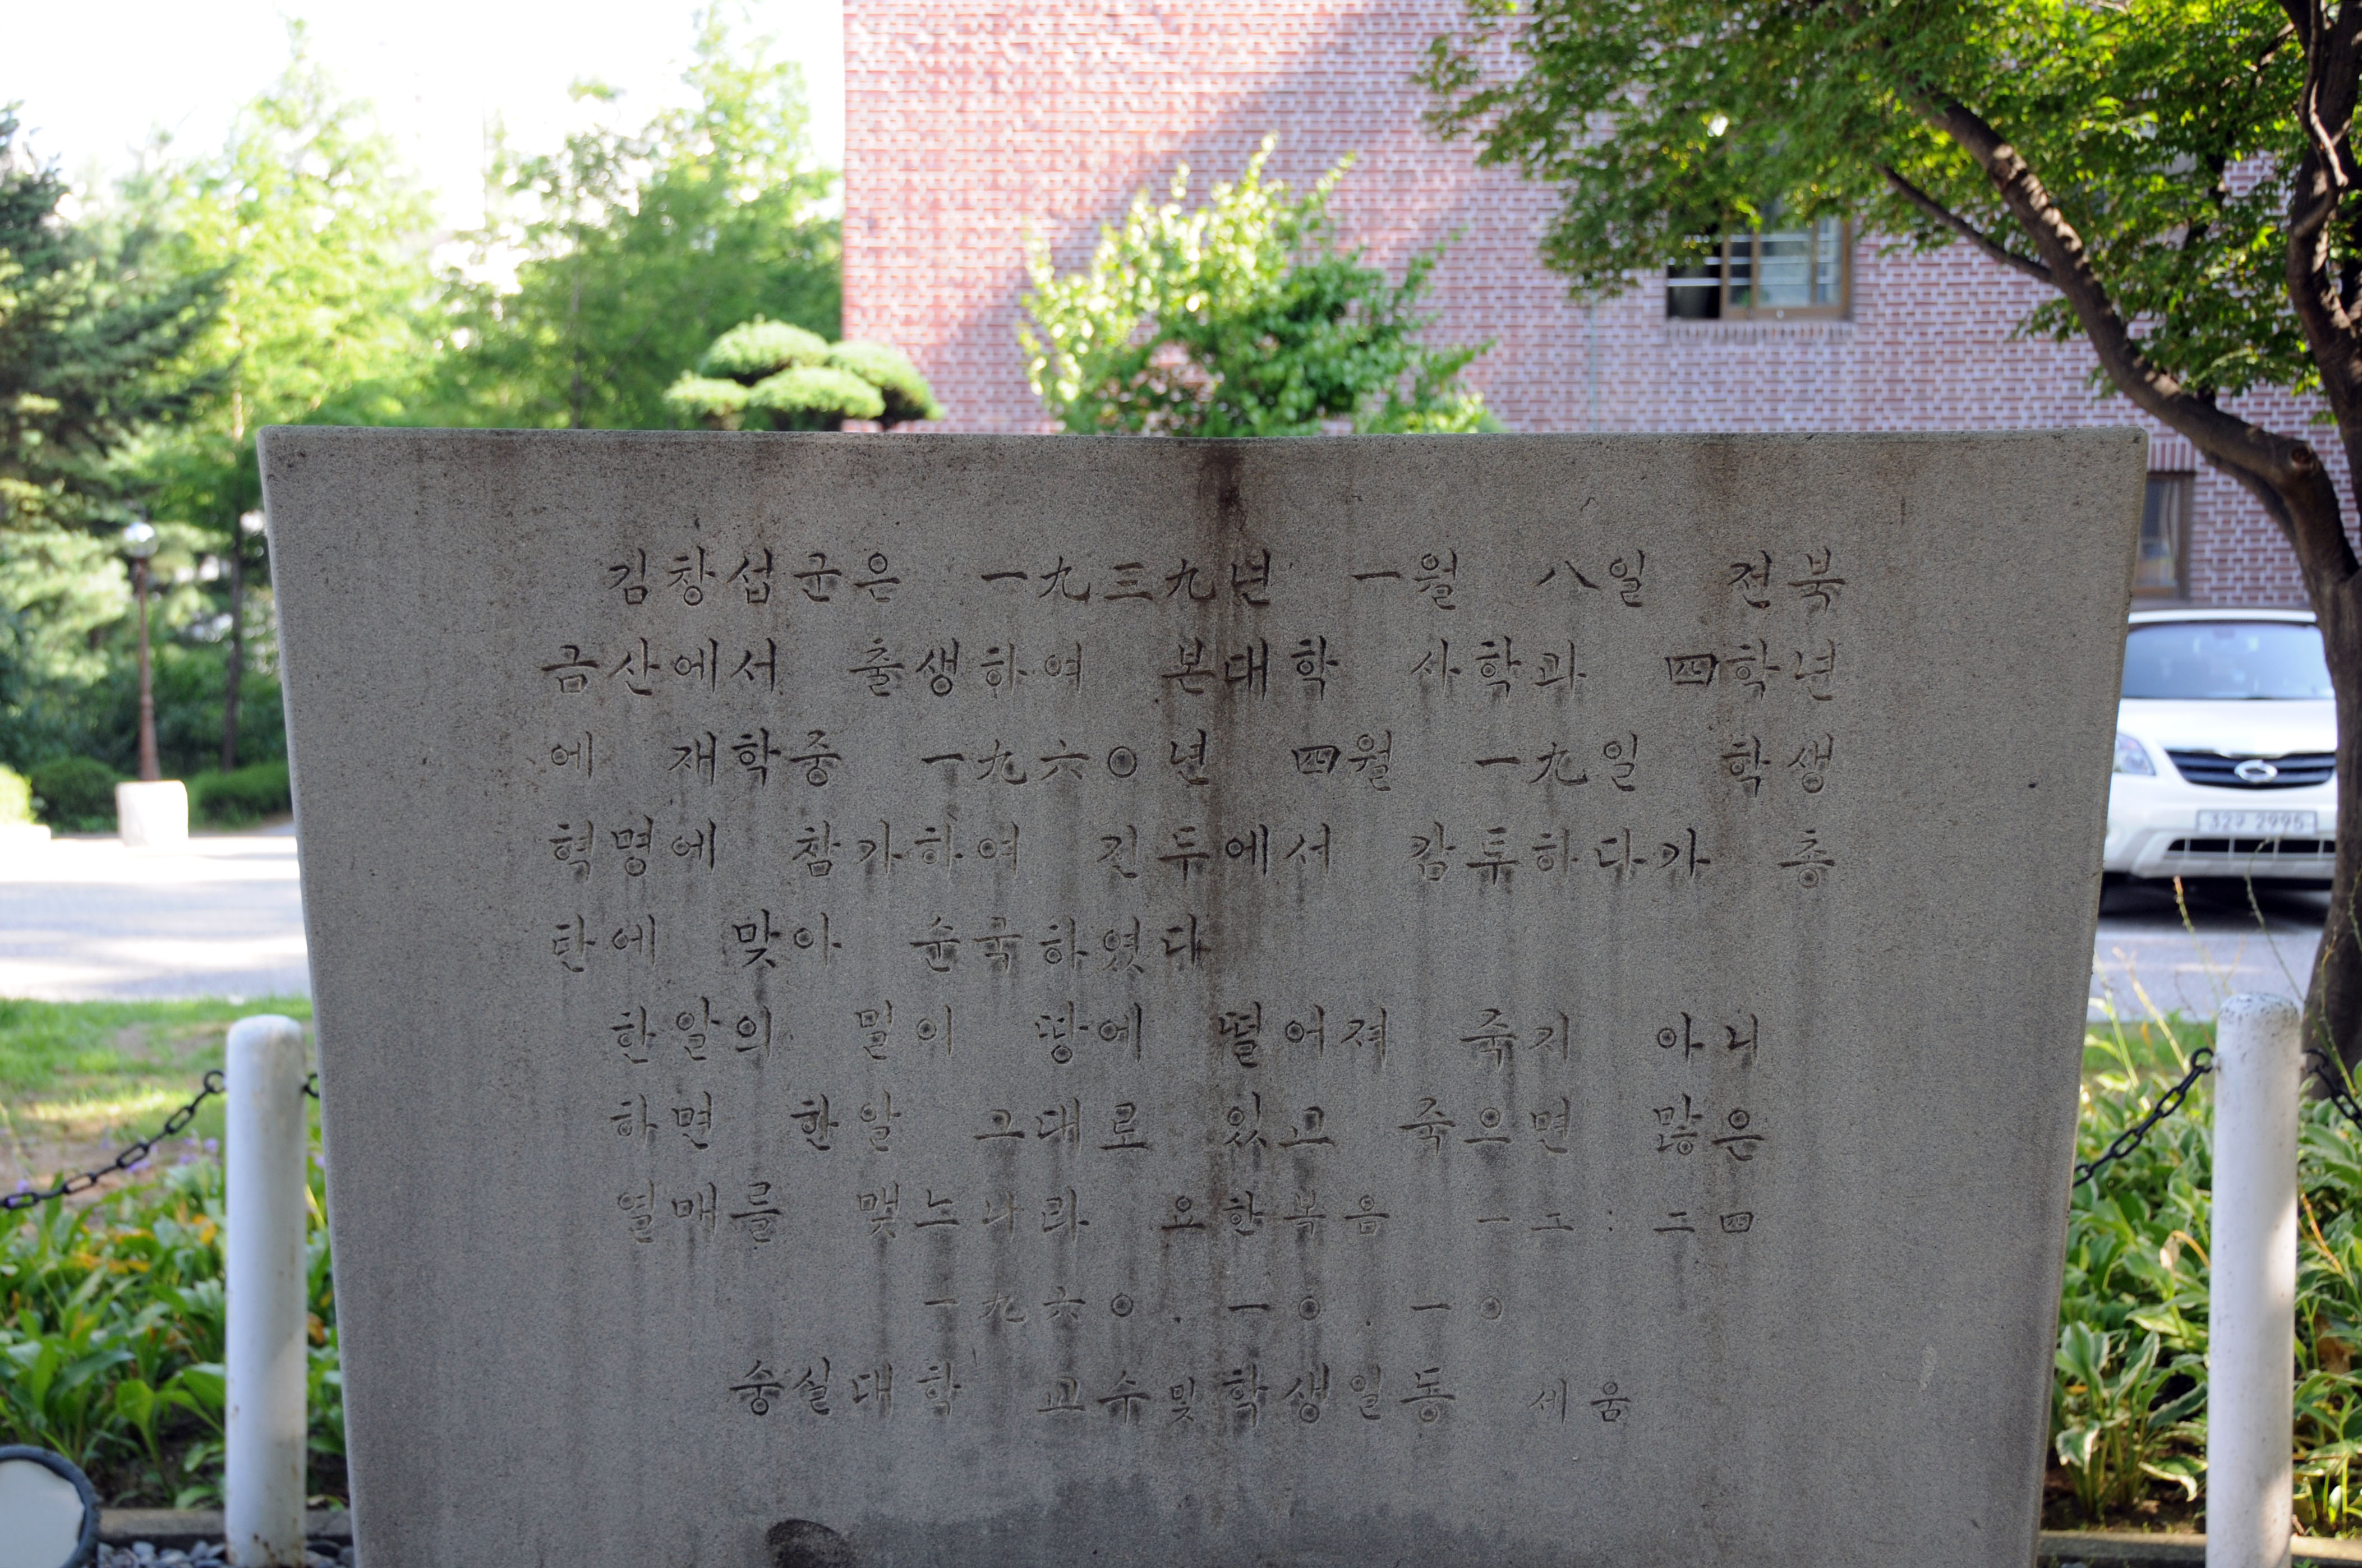 김창섭군은 一九三九년 一월 八일 전북
금산에서 출생하여 본대학 사학과 四학년
에 재학중 一九六〇년 四월 一九일 학생
혁명에 참가하여 진두에서 감투하다가 총
탄에 맞아 순국하였다
한알의 밀이 땅에 떨어져 죽지 아니
하면 한알 그대로 있고 죽으면 많은
열매를 맺느니라 요한복음 一二:二四
一九六〇.一〇.一〇
숭실대학 교수및학생일동 세움